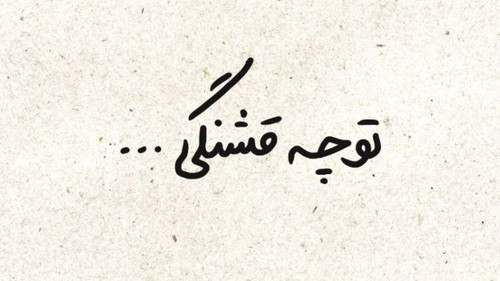 تو چه قشنگی...